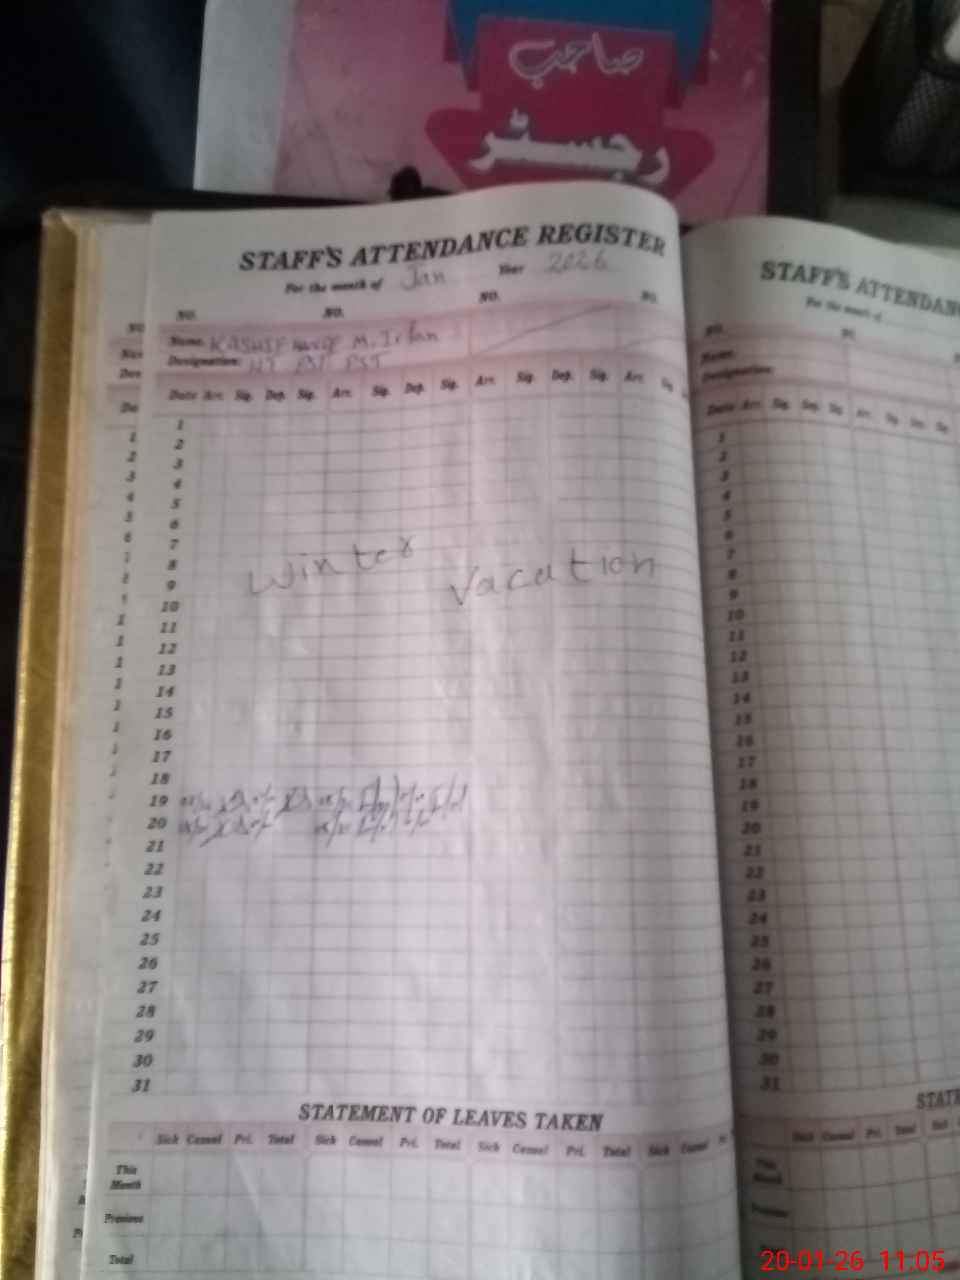 صاحب
رجسٹر
STAFF'S ATTENDANCE REGISTER
For the month of Jan Year 2026
NO. NO. NO. NO.
Name. KASHIF M. Irfan
Designation: HT PST PST
Date Arr. Sig. Dep. Sig. Arr. Sig. Dep. Sig. Arr. Sig. Dep. Sig. Arr. Sig.
1
2
3
4
5
6
7
8
9
10
11
12
13
14
15
16
17
18
19
20
21
22
23
24
25
26
27
28
29
30
31
Winter Vacation
STATEMENT OF LEAVES TAKEN
Sick Casual Pri. Total Sick Casual Pri. Total Sick Casual Pri. Total Sick Casual
This Month
Previous
Total
STAFF'S ATTENDANC
For the month of
NO.
Name.
Designation:
Date Arr. Sig. Dep. Sig. Arr. Sig. Dep. Sig.
1
2
3
4
5
6
7
8
9
10
11
12
13
14
15
16
17
18
19
20
21
22
23
24
25
26
27
28
29
30
31
STATE
Sick Casual Pri. Total Sick
This Month
Previous
20-01-26 11:05